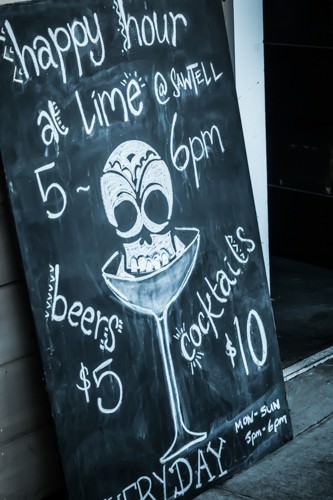 happy hour
at lime @ SAWTELL
5 ~ 6pm
beers
$5
cocktails
$10
MON-SUN
5pm-6pm